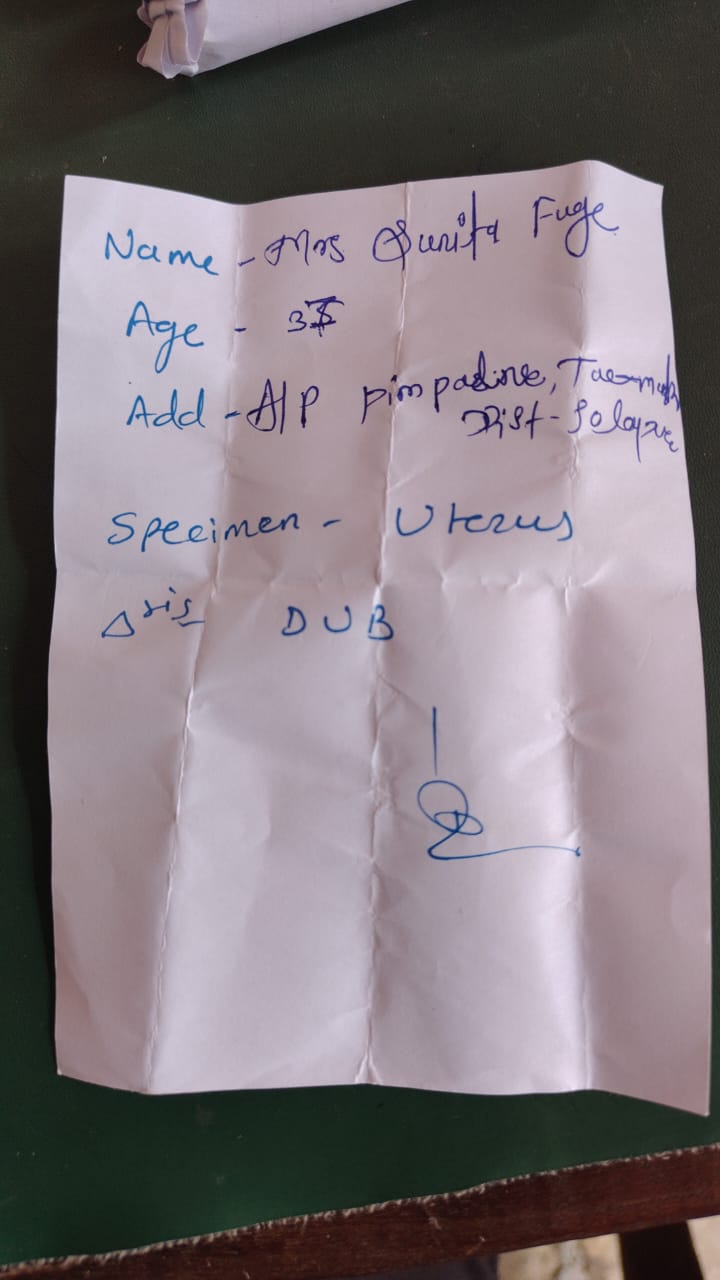 Name - Mrs Sunita Fuge
Age -
Add - A/P Pimpadine,
Dist - Solapur
Specimen - Uterus
Δsis DUB